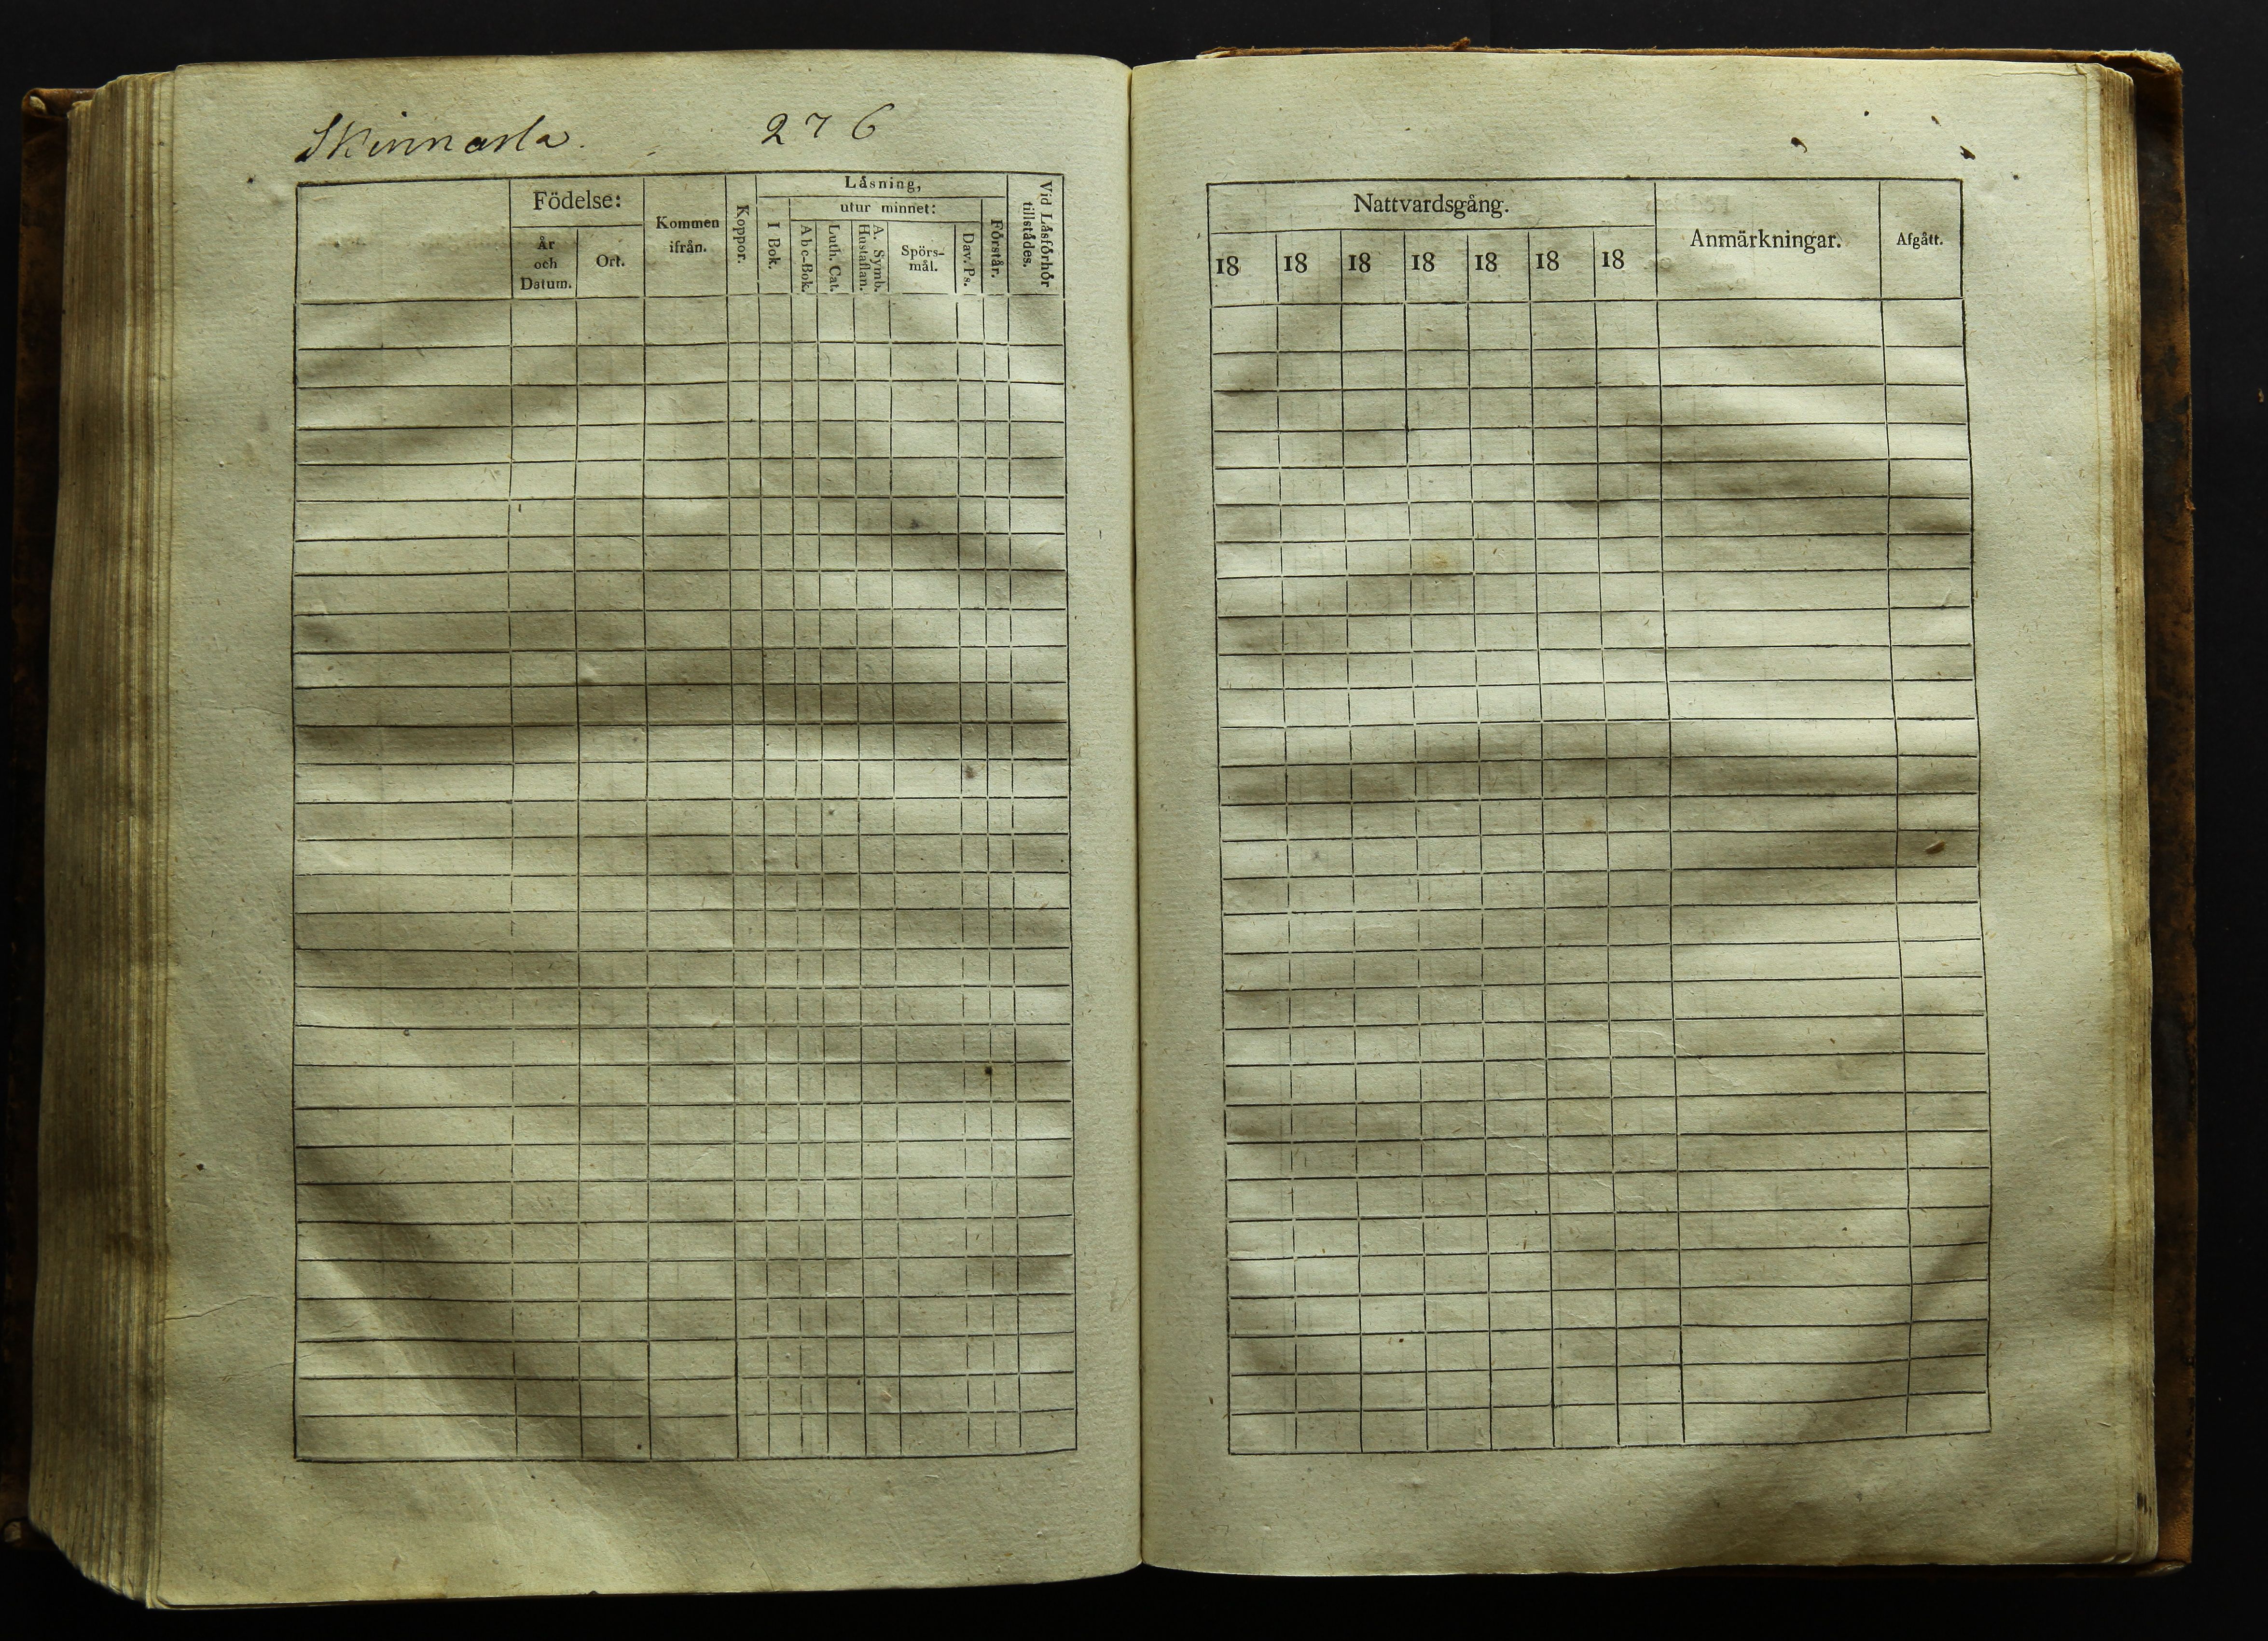 Skinnarla. 276
Födelse:
År
och
Datum.
Ort.
Kommen
ifrån.
Koppor.
Låsning,
utur minnet:
I Bok.
Abc-Bok.
Luth. Cat.
A. Symb.
Hustaflan.
Spörs-
mål.
Dav. Ps.
Förstår.
Vid Låsförhör
tillstådes.
Nattvardsgång.
18 18 18 18 18 18 18
Anmärkningar.
Afgått.